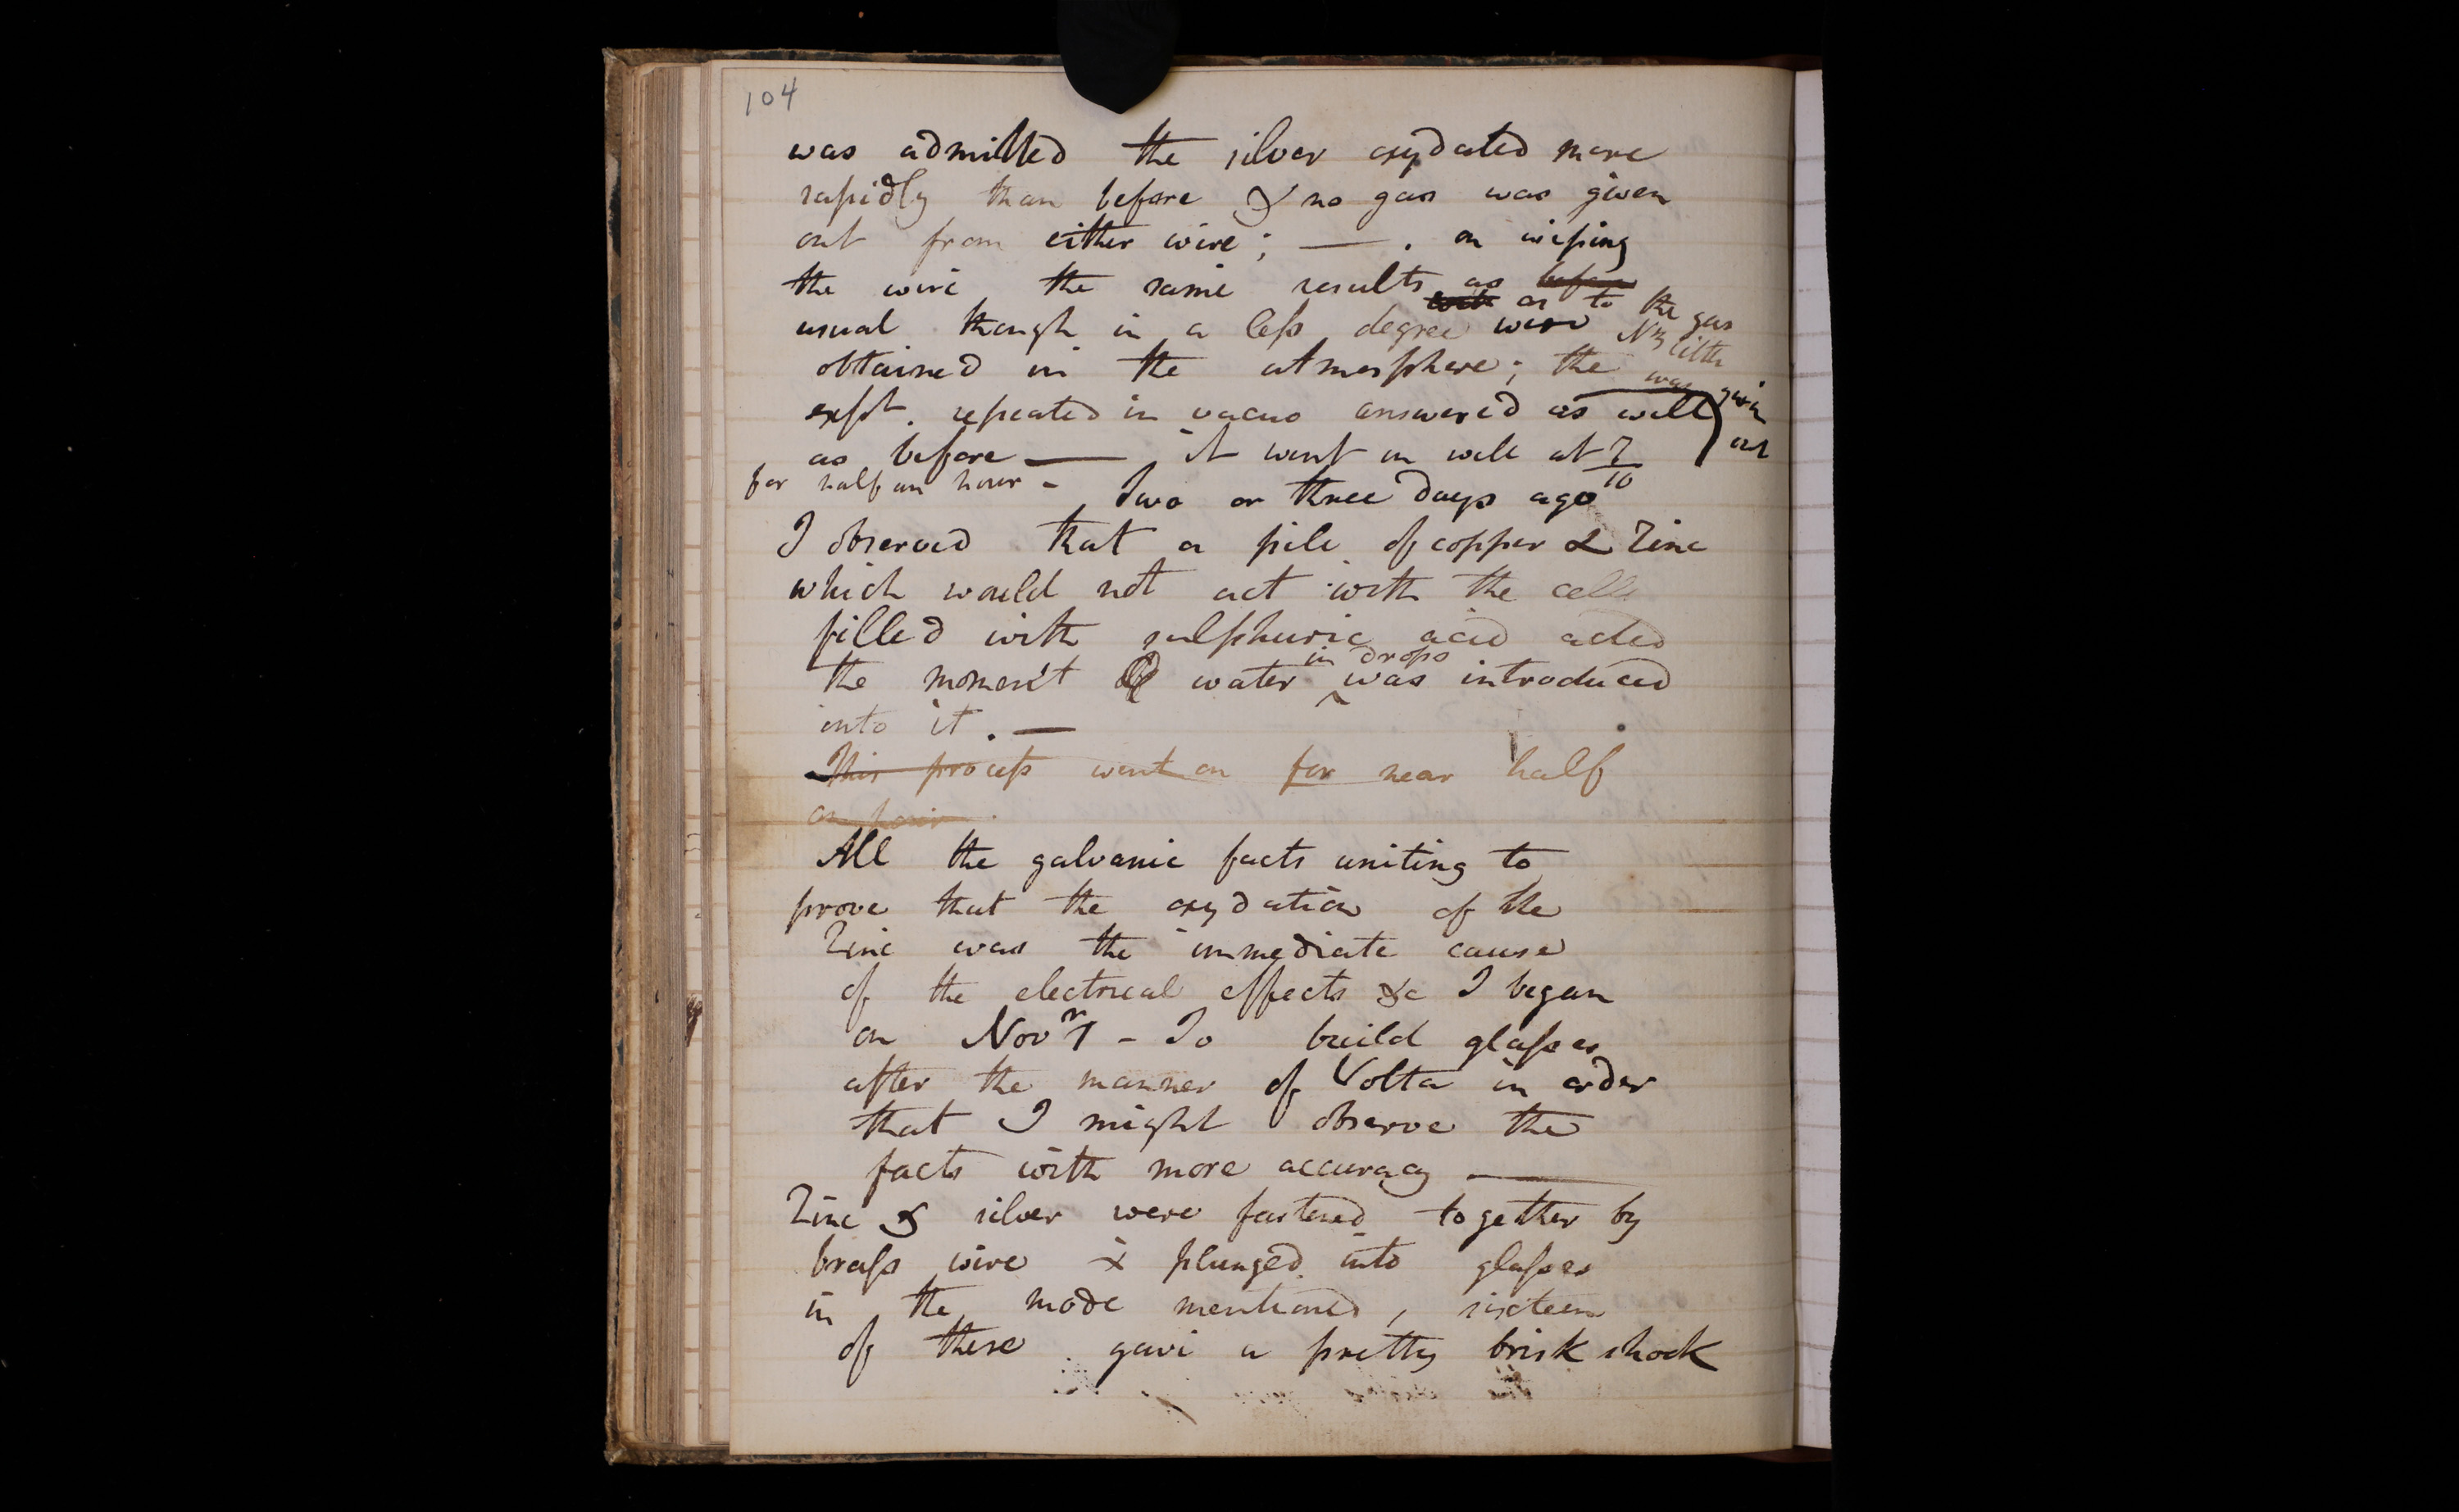 104
was admitted the silver oxydated more
rapidly than before & no gas was given
out from either wire; — . on wiping
the wire the same results as before
as to the gas
usual though in a less degree were Ny little
obtained in the atmosphere; the was given
expt. repeated in vacuo answered as well out
as before — it went on well at 7/10
for half an hour - Two or three days ago
I observed that a pile of copper & Zinc
which would not act with the cells
filled with sulphuric acid acted
in drops
the moment water ‸ was introduced
into it. —
This process went on for near half
an hour.
All the galvanic facts uniting to
prove that the oxydation of the
Zinc was the immediate cause
of the electrical effects &c I began
on Novr 7 - To build glasses
after the manner of Volta in order
that I might observe the
facts with more accuracy —
Zinc & silver were fastened together by
brass wire & plunged into glasses
in the mode mentioned, sixteen
of these gave a pretty brisk shock